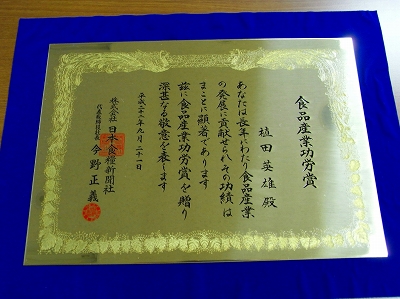 食品産業功労賞
植田英雄殿
あなたは長年にわたり食品産業
の発展に貢献せられその功績は
まことに顕著であります
茲に食品産業功労賞を贈り
深甚なる敬意を表します
平成二十三年九月二十一日
株式会社日本食糧新聞社
代表取締役社長今野正義